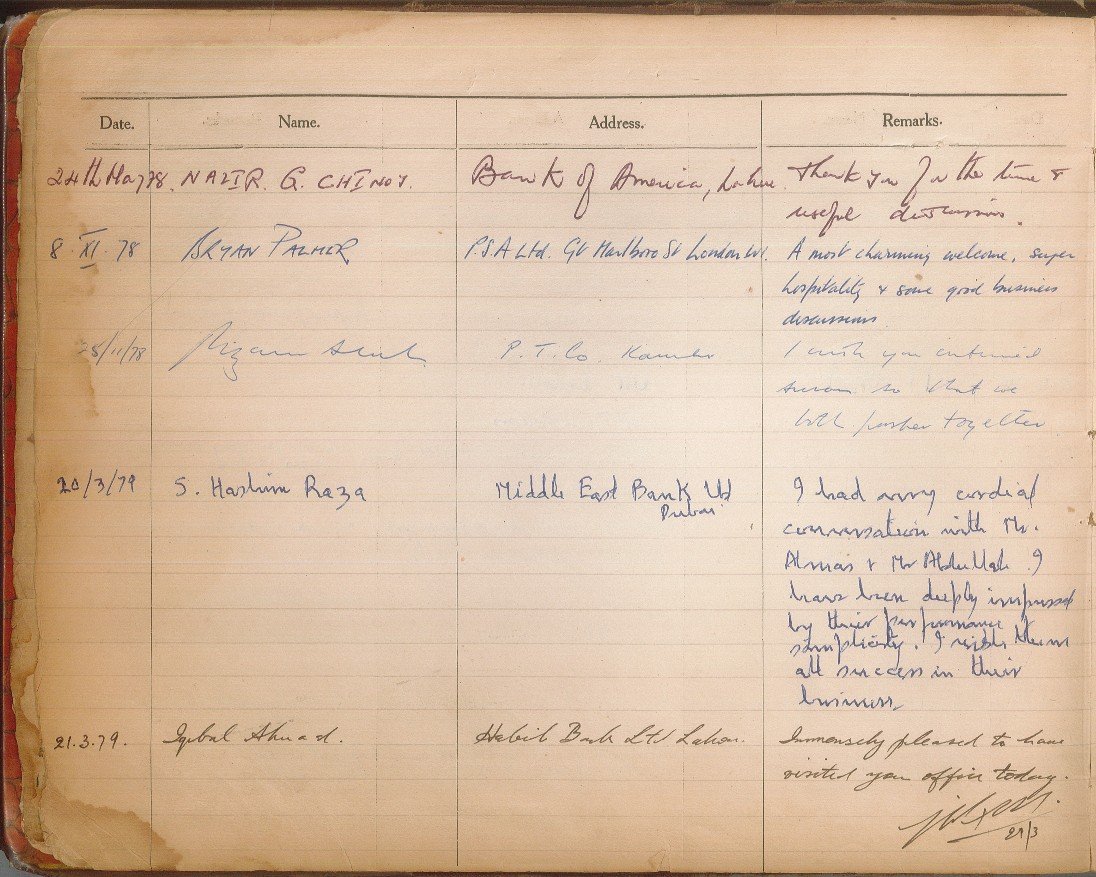 Date. Name. Address. Remarks.
24th May 78. NAZIR. G. CHINOY. Bank of America, Lahore. Thank you for the time &
useful discussion.
8. XI. 78 BRYAN PALMER P.S.A Ltd. Gt Marlboro St London W1. A most charming welcome, super
hospitality & some good business
discussions.
/11/78 P. T. Co. I wish you continued
so that we
both prosper together
20/3/79 S. Hashim Raza Middle East Bank Ltd I had very cordial
Dubai
conversation with Mr.
Almas & Mr Abdullah. I
have been deeply impressed
by their performance &
simplicity. I wish them
all success in their
business.
21.3.79. Iqbal Ahmad. Habib Bank Ltd Lahore. Immensely pleased to have
visited your office today.
21/3